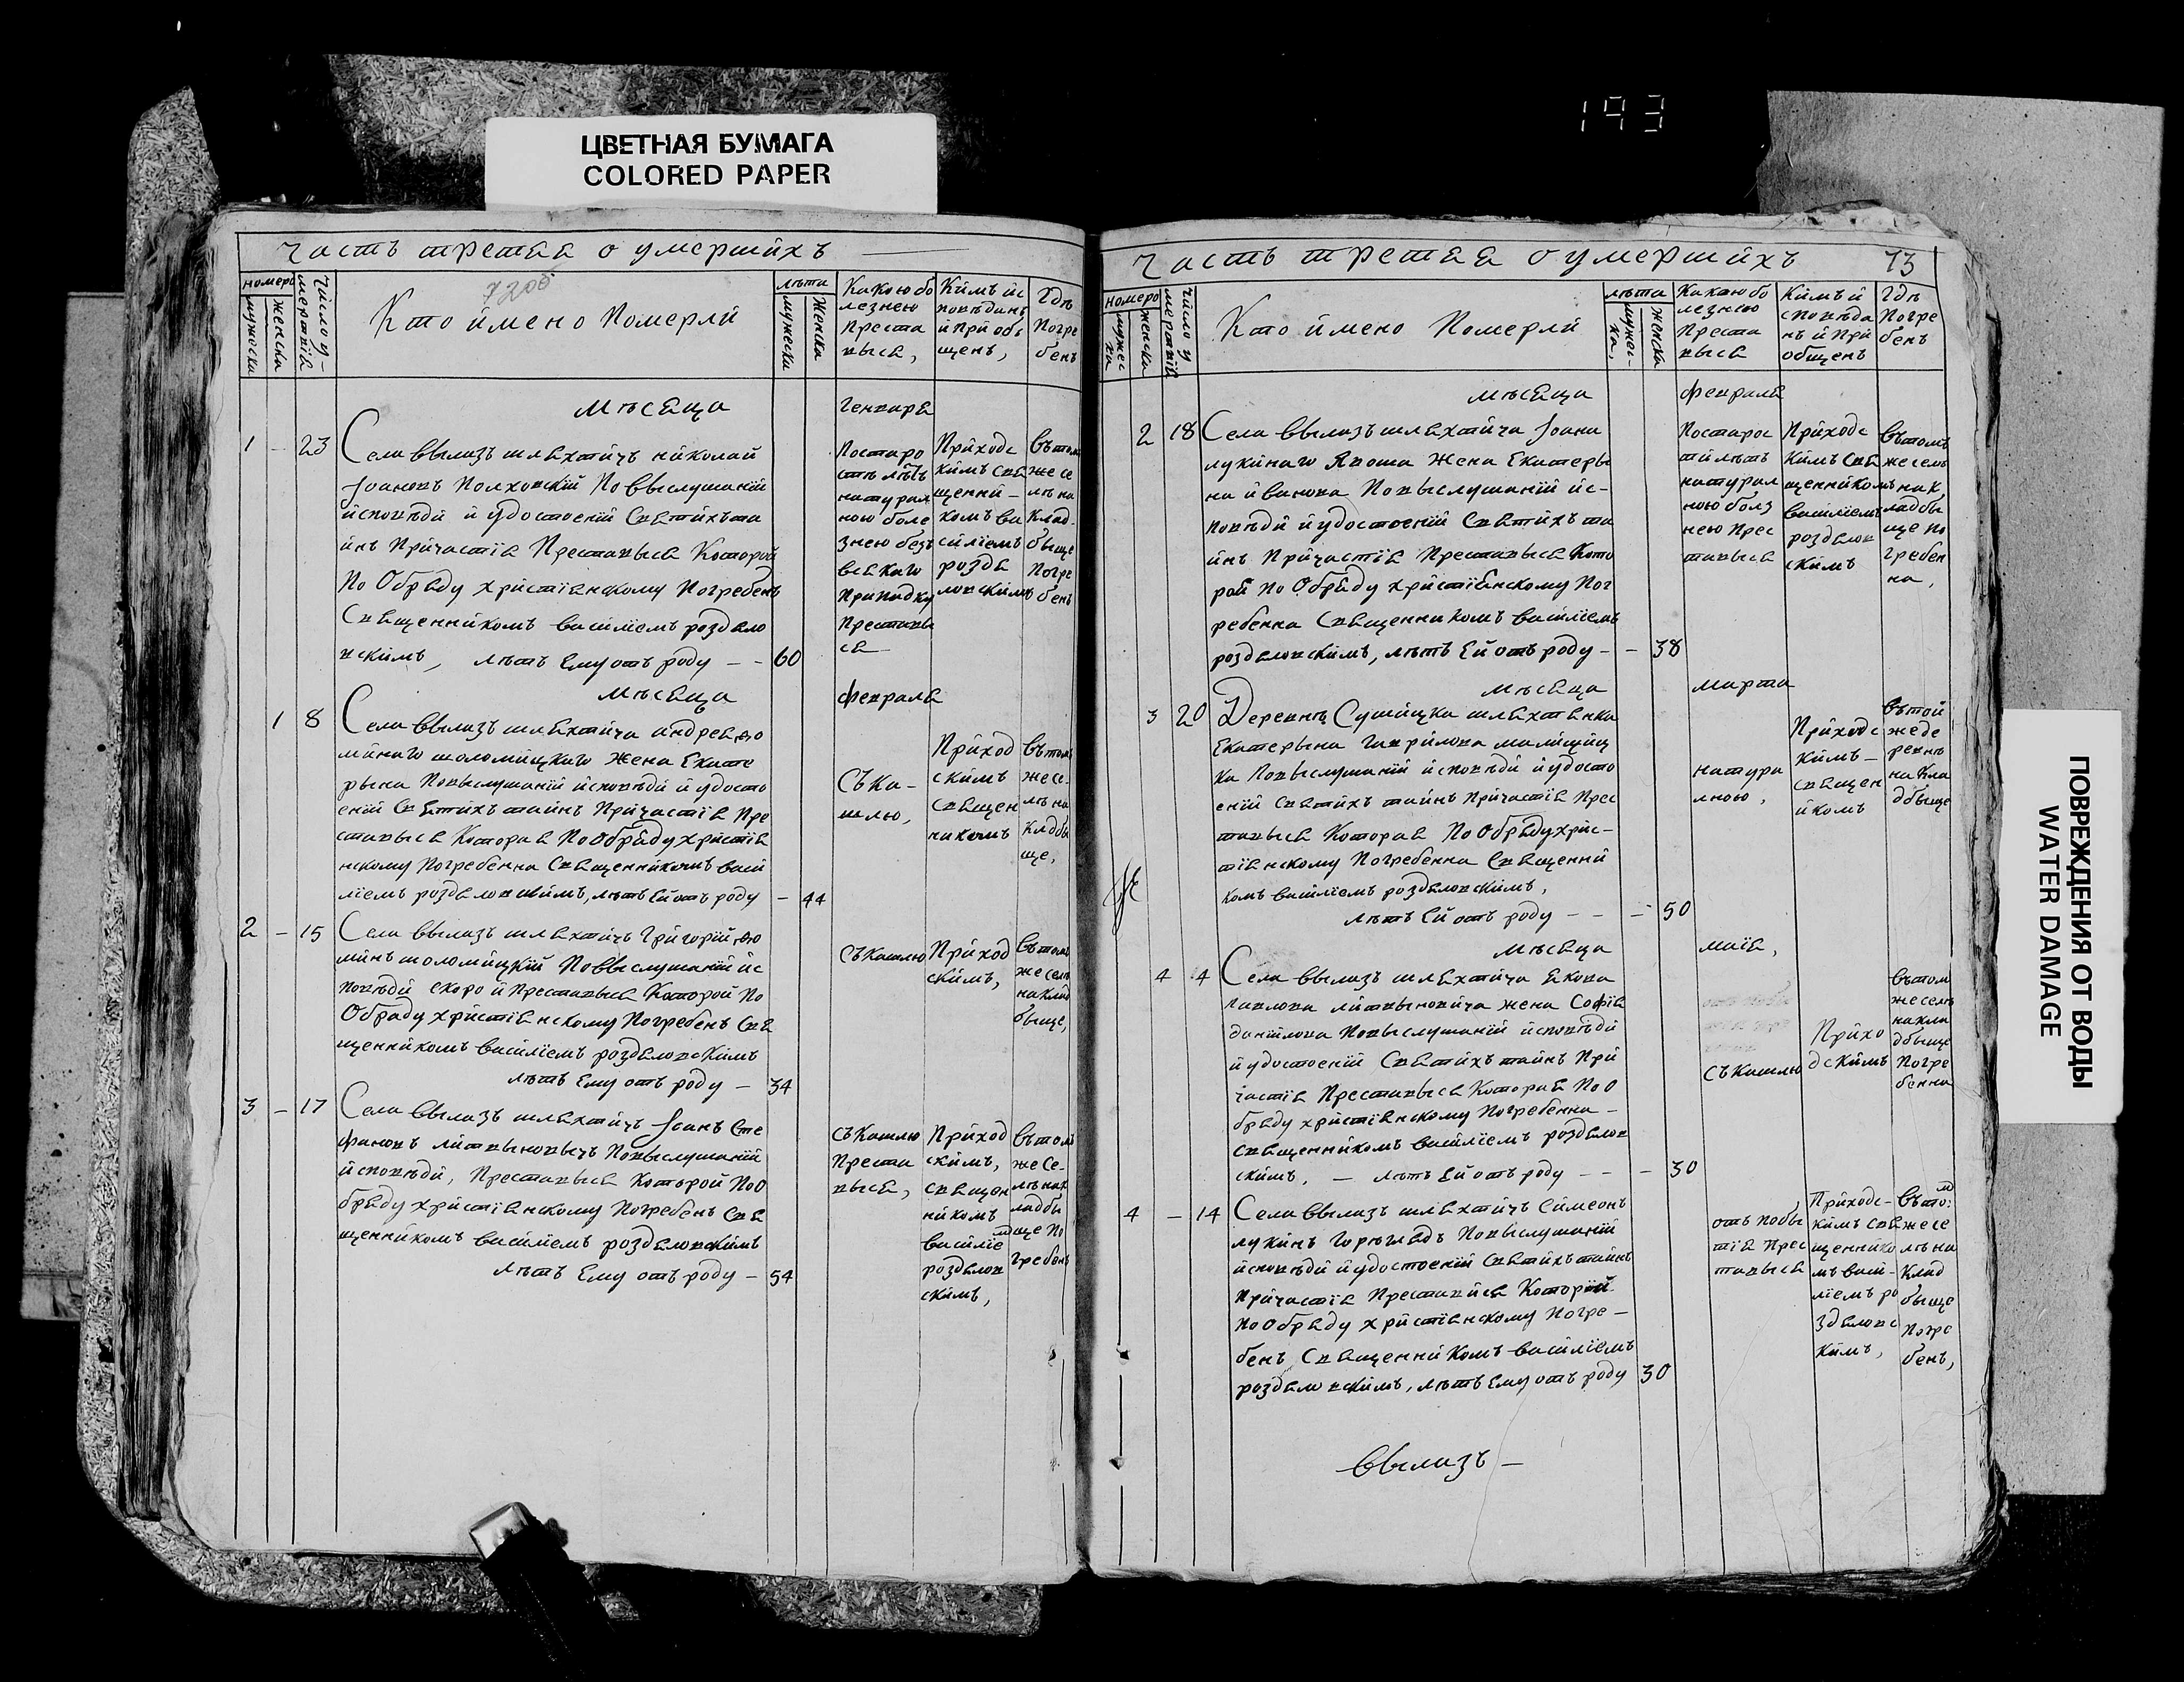 ЦВЕТНАЯ БУМАГА
COLORED PAPER
193
Часть третяя о умершихъ
номеръ
мужеска
женска
число умертвія
7200
Кто именно Померли
лѣта
мужеска
женска
Какою бо
лезнею
Преста
вися,
Кимъ ис
повѣданъ
и Приоб
щенъ,
Гдѣ
Погре
бенъ
мѣсяца Генваря
1 – 23
Села Вылазъ шляхтичъ николай
Іоановъ Полховскій По выслушаніи
исповѣди и удостоеній Святихъ та
инъ Причастія Преставыся Которой
По Обряду христіянскому Погребенъ
Священникомъ василіемъ роздяло
вскимъ, лѣтъ Ему отъ роду – – 60
Постаро
сть лѣтъ
натурал
ною боле
знею безъ
всякаго
Припадку
Преставы
ся
Приходс
кимъ Свя
щенни–
комъ ва
силіемъ
роздя
ловскимъ
въ томъ
же се
лѣ на
Клад–
быще
Погре
бенъ
мѣсяца февраля
1 8
Села Вылазъ шляхтича андрея ѳо
минаго шоломицкаго Жена Екате
рына Повыслушаніи исповѣди и удосто
еній Святихъ таинъ Причастія Пре
ставыся Которая По Обряду христія
нскому Погребенна Священникомъ васи
ліемъ роздяловскимъ, лѣтъ Ей отъ роду – 44
Съ Ка–
шлю,
Приход
скимъ
Священ
никомъ
въ томъ
же се–
лѣ на
Кладбы
ще,
2 – 15
Села Вылазъ шляхтичъ Григорій ѳо
минъ шоломицкій По выслушаніи ис
повѣди скоро и Преставыся Которой По
Обряду христіянскому Погребенъ Свя
щенникомъ василіемъ роздяловскимъ
лѣтъ Ему отъ роду – 34
Съ Кашлю
Приход
скимъ,
въ томъ
же селѣ
на клад
быще,
3 – 17
Села Вылазъ шляхтичъ Іоанъ Сте
фановъ литвыновычъ Повыслушаніи
исповѣди, Преставыся Которой По О
бряду христіянскому Погребенъ Свя
щенникомъ василіемъ роздяловскимъ
лѣтъ Ему отъ роду – 54
Съ Кашлю
Преста
выся,
Приход
скимъ,
священ
никомъ
василіе
м
роздялов
скимъ,
въ томъ
же Се–
лѣ на к
ладбы
ще По
гребенъ
Часть третяя о умершихъ 73
номеро
мужес
ка
женска
число у
мертвія
Кто имено Померли
лѣта
мужес–
ка,
женска
Какою бо
лезнею
Преста
выся
Кимъ и
сповѣда
нъ и При
общенъ
Гдѣ
Погре
бенъ
мѣсяца февраля
2 18
Села Вылазъ шляхтича Іоана
лукинаго Жена Екатеры
на иванова Повыслушаніи ис–
повѣди и удостоеній Святихъ та
инъ Причастія Преставыся Кото
рой По Обряду христіянскому Пог
ребенна Священникомъ василіемъ
роздяловскимъ, лѣтъ Ей отъ роду – – 38
Постарос
ти лѣтъ
натурал
ною болз
нею Прес
тавыся
Приходс
кимъ Свя
щенникомъ
василіемъ
роздялов
скимъ
въ томъ
же селѣ
на к
ладбы
ще по
гребен
на,
мѣсяца марта
3 20
Деревнѣ Сушицка шляхтянка
Екатерына Гаврилова
ка Повыслушаніи исповѣди и удосто
еній Святихъ таинъ Причастія Прес
тавыся Которая По Обряду хрис–
тіянскому Погребенна Священни
комъ василіемъ роздяловскимъ,
лѣтъ Ей отъ роду – – – 50
натура
лною,
Приходс
кимъ –
священ
икомъ
въ той
же де
ревнѣ
на Кла
дбыще
мѣсяца маія,
4 4
Села Вылазъ шляхтича Якова
Павлова литвыновича жена Софія
данілова Повыслушаніи исповѣди
и удостоеній Святихъ таинъ При
частія Преставыся Которая По О
бряду христіянскому Погребенна –
Священникомъ василіемъ роздялов
скимъ, – лѣтъ Ей отъ роду – – – 30
Съ Кашлю
Прихо
дскимъ
въ том
же селѣ
на кла
дбыще
Погре
бенна
4 – 14
Села Вылазъ шляхтичъ Симеонъ
лукинъ Горегладъ Повыслушаніи
исповѣди и удостоеній Святихъ таинъ
Причастія Преставися Которой
По Обряду христіянскому Погре–
бенъ Священникомъ василіемъ
роздяловскимъ, лѣтъ Ему отъ роду 30
отъ побы
тія Прес
тавыся
Приходс–
кимъ свя
щеннико
мъ васи–
ліемъ ро
здяловс
кимъ,
въ то:м
же се
лѣ на
Клад
быще
Погре
бенъ,
Вылазъ –
ПОВРЕЖДЕНИЯ ОТ ВОДЫ
WATER DAMAGE